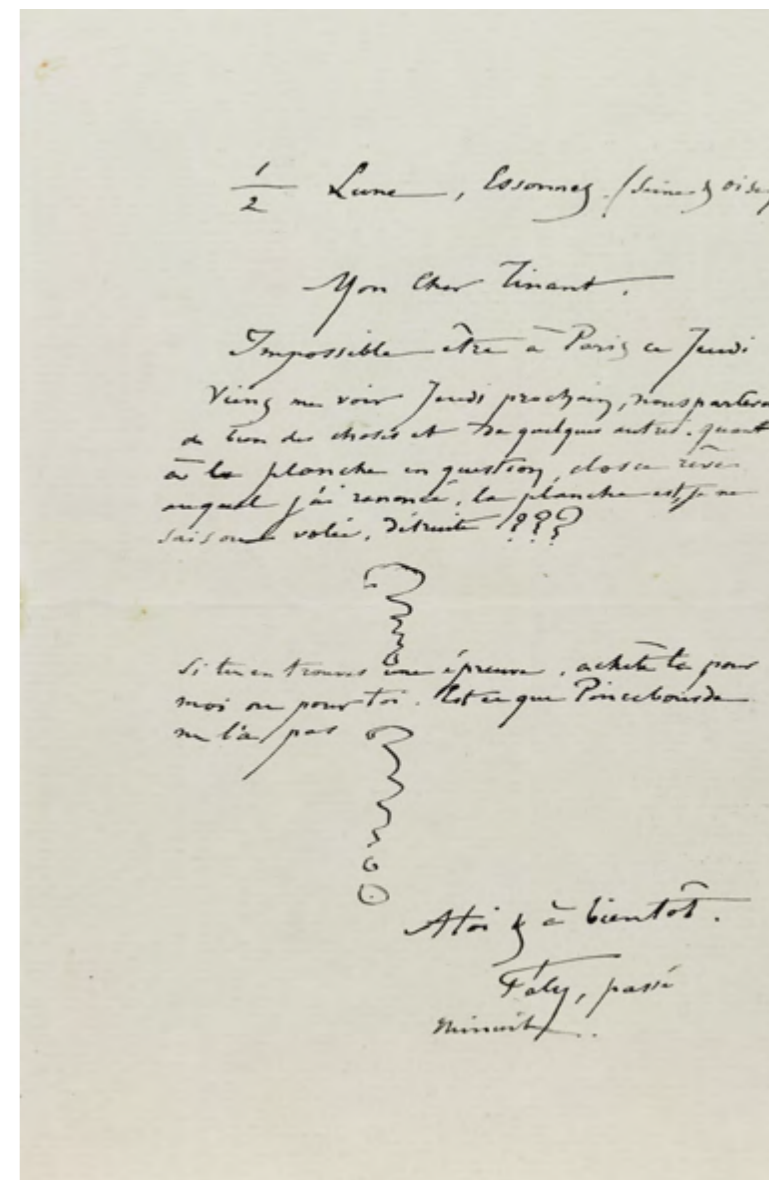 1/2 Lune, Essonnes. (Seine & oise)
Mon Cher Tinant.
Impossible être à Paris ce Jeudi
Viens me voir Jeudi prochain, nous parlerons
de bien des choses et de quelques autres. quant
à la planche en question, dos ce rêve
auquel j'ai renoncé, la planche est, je ne
sais où volée, détruite ???
Si tu en trouves une épreuve, achète la pour
moi ou pour toi. Est ce que Pincebourde
ne l'a pas ?
A toi & à bientôt.
Fély, passé
minuit.